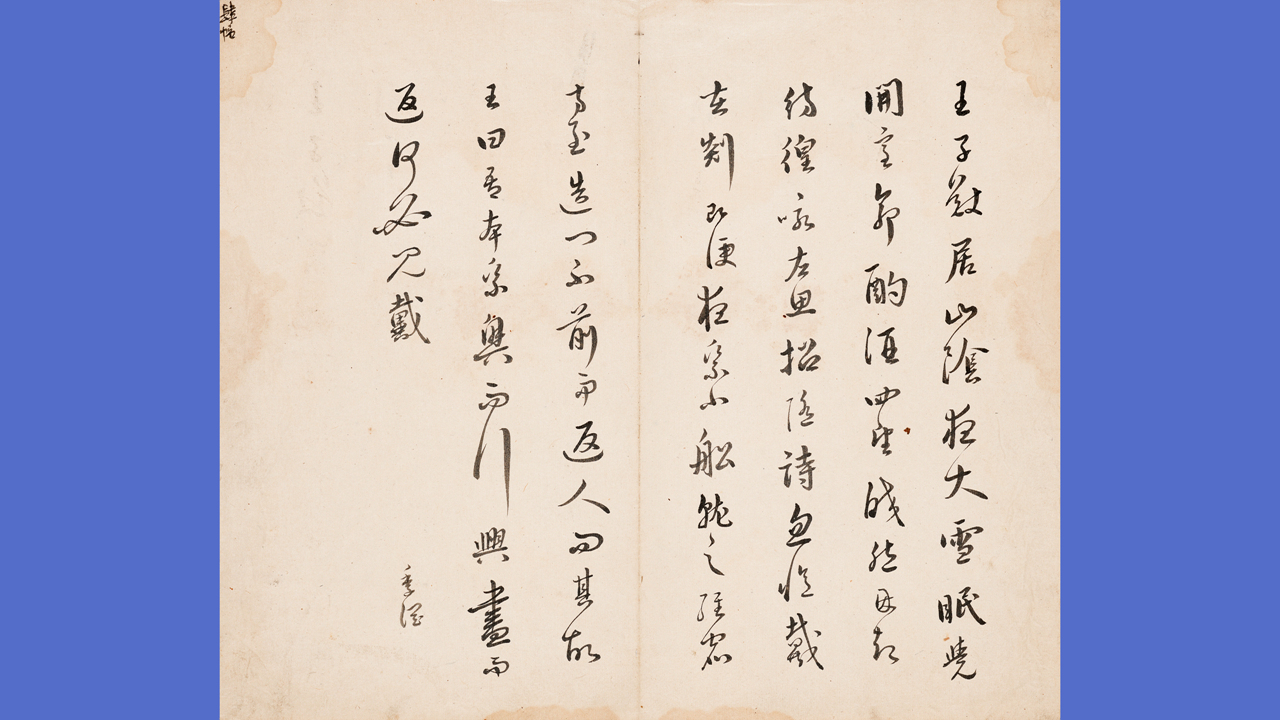 王子猷居山陰夜大雪眠覺
開室命酌酒四望皎然因起
彷徨詠左思招隱詩忽憶戴
在剡即便夜乘小船就之經宿
方至造門不前而返人問其故
王曰吾本乘興而行興盡而
返何必見戴
季
肆